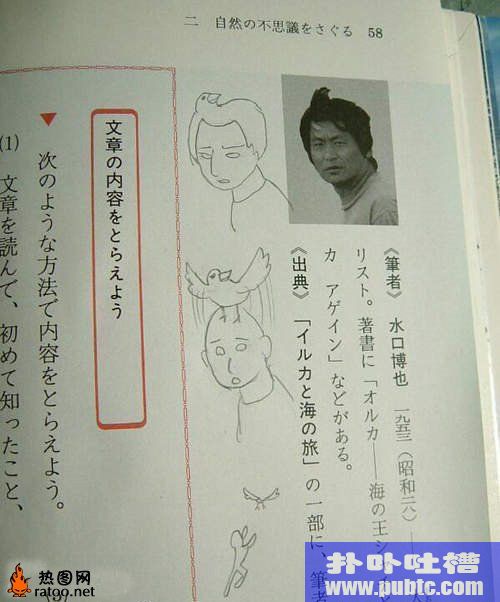 二　自然の不思議をさぐる　58
《筆者》　水口博也　一九五三（昭和二八）――
リスト。著書に「オルカ――海の王シ
カ　アゲイン」などがある。
《出典》　「イルカと海の旅」の一部に、筆者
文章の内容をとらえよう
▼　次のような方法で内容をとらえよう。
(1)　文章を読んで、初めて知ったこと、
热图网
ratoo.net
扑叶吐槽
www.pubtc.com